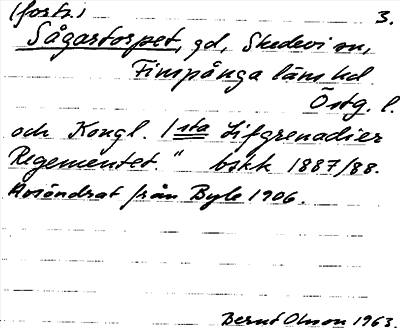 (forts.) 3.
Sågartorpet, gd, Skedevi sn,
Finspånga läns hd
Östg. l.
och Kongl. 1sta Lifgrenadier
Regementet." bskk 1887/88.
Avsöndrat från Byle 1906.
Bernt Olsson 1963.